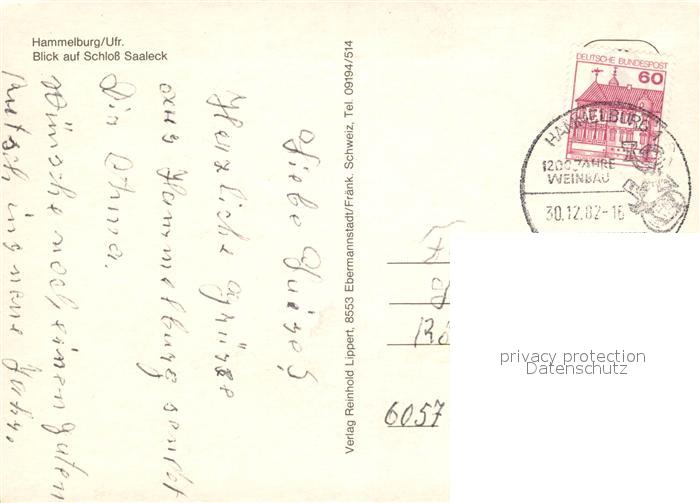 Hammelburg/Ufr.
Blick auf Schloß Saaleck
Liebe
Herzliche Grüsse
aus Hammelburg sendet
Dir Anna.
Wünsche noch einen guten
Rutsch ins neue Jahr.
Verlag Reinhold Lippert, 8553 Ebermannstadt/Fränk. Schweiz, Tel. 09194/514
DEUTSCHE BUNDESPOST
60
HAMMELBURG 1
1200 JAHRE
WEINBAU
30.12.82-16
6057
privacy protection
Datenschutz